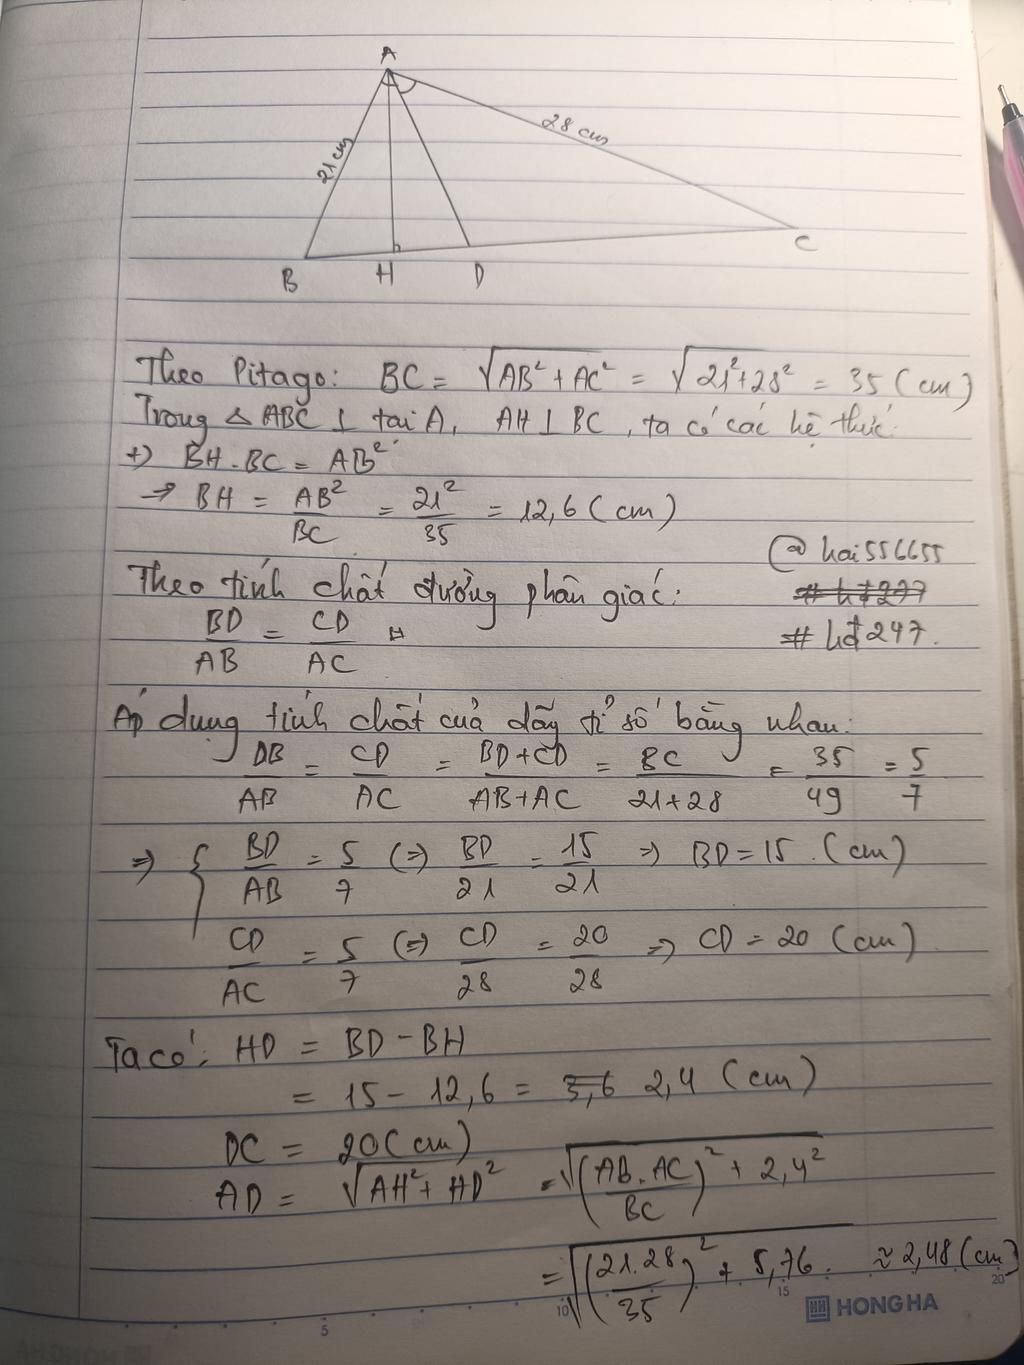 A
21 cm
28 cm
B H D C
Theo Pitago: BC = √AB² + AC² = √21²+28² = 35 (cm)
Trong △ ABC ⊥ tại A, AH ⊥ BC, ta có các hệ thức:
+) BH.BC = AB²
→ BH = AB²/BC = 21²/35 = 12,6 (cm)
@hai556655
Theo tính chất đường phân giác:
BD/AB = CD/AC
# hđ247.
Áp dụng tính chất của dãy tỉ số bằng nhau:
DB/AB = CD/AC = BD+CD/AB+AC = BC/21+28 = 35/49 = 5/7
⇒ { BD/AB = 5/7 (⇒) BD/21 = 15/21 ⇒ BD = 15. (cm)
CD/AC = 5/7 (⇒) CD/28 = 20/28 ⇒ CD = 20 (cm)
Ta có: HD = BD - BH
= 15 - 12,6 = 3,6 2,4 (cm)
DC = 20 (cm)
AD = √AH² + HD² = √(AB.AC/BC)² + 2,4²
= √(21.28/35)² + 5,76. ≈ 2,48 (cm)
5 10 15 20
HONG HA